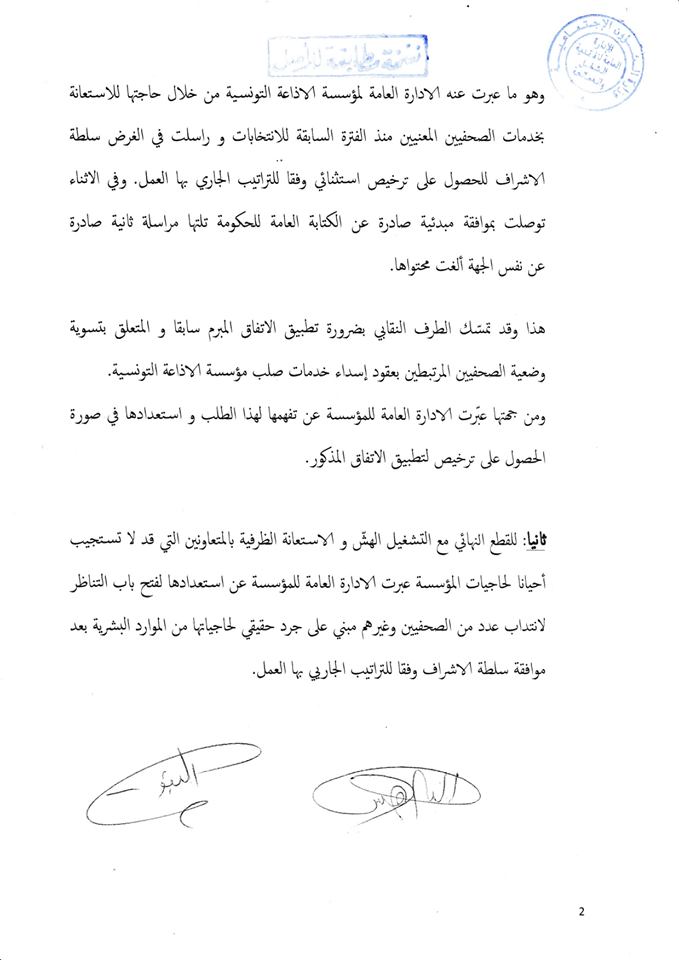 نسخة مطابقة للأصل
وهو ما عبرت عنه الادارة العامة لمؤسسة الاذاعة التونسية من خلال حاجتها للاستعانة
بخدمات الصحفيين المعنيين منذ الفترة السابقة للانتخابات و راسلت في الغرض سلطة
الاشراف للحصول على ترخيص استثنائي وفقا للتراتيب الجاري بها العمل. وفي الاثناء
توصلت بموافقة مبدئية صادرة عن الكتابة العامة للحكومة تلتها مراسلة ثانية صادرة
عن نفس الجهة ألغت محتواها.
هذا وقد تمسّك الطرف النقابي بضرورة تطبيق الاتفاق المبرم سابقا و المتعلق بتسوية
وضعية الصحفيين المرتبطين بعقود إسداء خدمات صلب مؤسسة الاذاعة التونسية.
ومن جهتها عبّرت الادارة العامة للمؤسسة عن تفهمها لهذا الطلب و استعدادها في صورة
الحصول على ترخيص لتطبيق الاتفاق المذكور.
ثانيا: للقطع النهائي مع التشغيل الهشّ و الاستعانة الظرفية بالمتعاونين التي قد لا تستجيب
أحيانا لحاجيات المؤسسة عبرت الادارة العامة للمؤسسة عن استعدادها لفتح باب التناظر
لانتداب عدد من الصحفيين وغيرهم مبني على جرد حقيقي لحاجياتها من الموارد البشرية بعد
موافقة سلطة الاشراف وفقا للتراتيب الجاريي بها العمل.
2